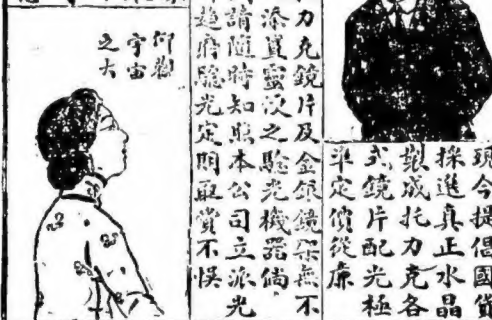 現今提倡國貨
採進真正水晶
製成托力克各
式鏡片配光極
準定價從廉
力克鏡片及金銀鏡架無不
添置靈之驗光機器倘
請隨時知照本公司立派光
趨府驗光定期取貨不悞
仰觀
宇宙
之大